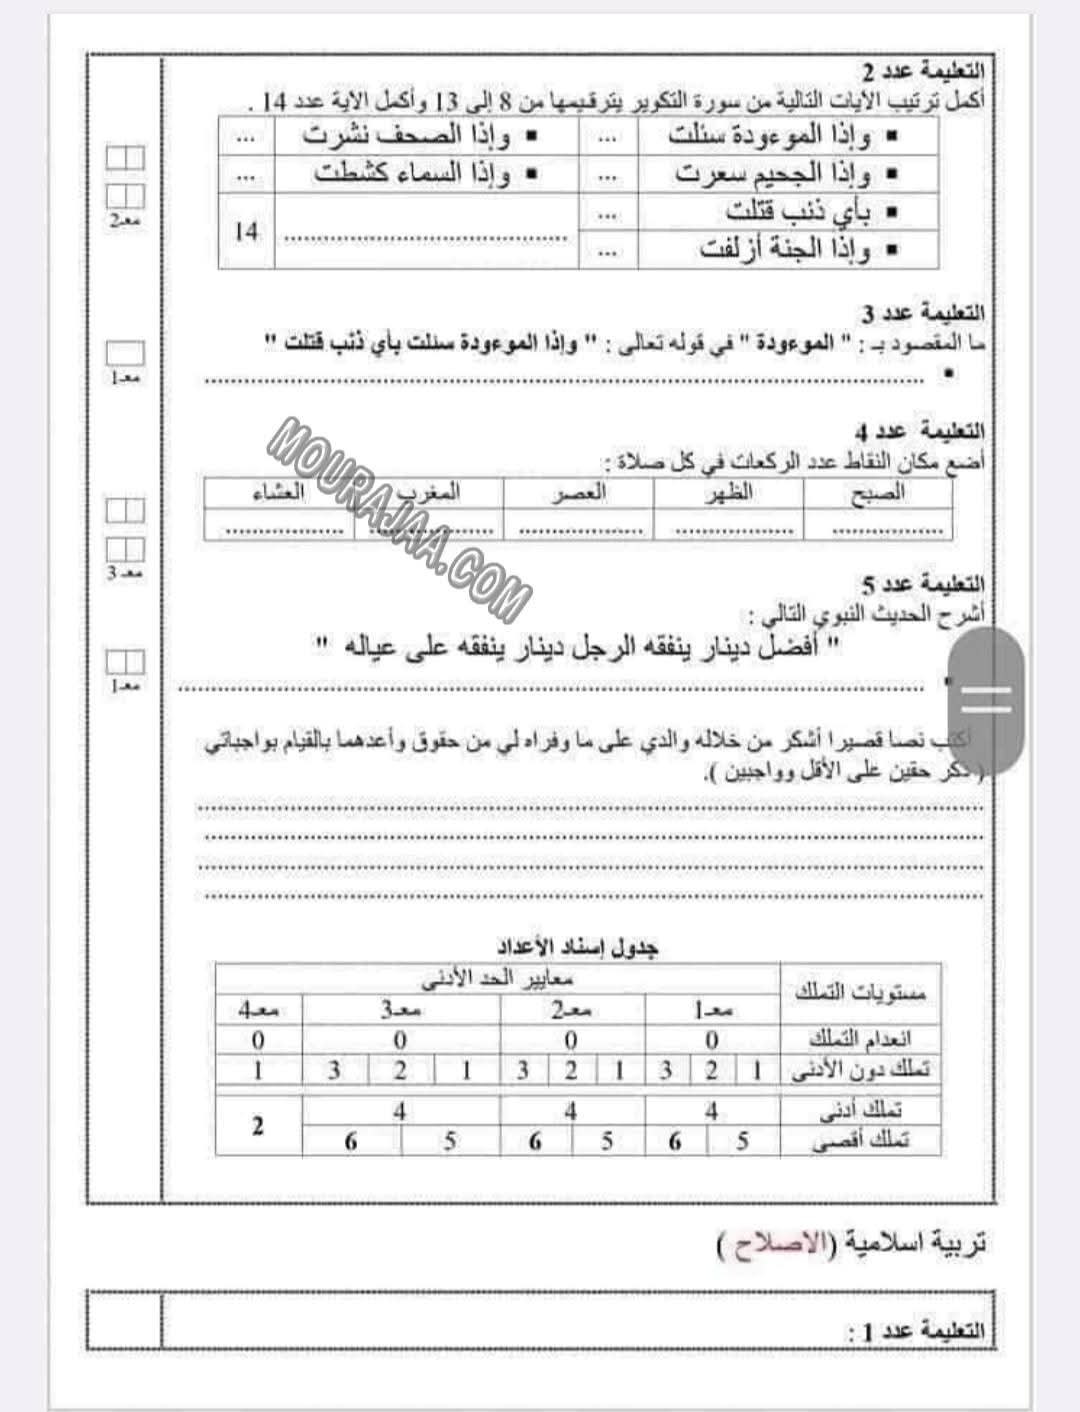 التعليمة عدد 2
أكمل ترتيب الآيات التالية من سورة التكوير يترقيمها من 8 إلى 13 وأكمل الآية عدد 14 .
▪ وإذا الموءودة سئلت ... ▪ وإذا الصحف نشرت ...
▪ وإذا الجحيم سعرت ... ▪ وإذا السماء كشطت ...
▪ بأي ذنب قتلت ... ........................................ 14
▪ وإذا الجنة أزلفت ...
معـ2
التعليمة عدد 3
ما المقصود بـ : " الموءودة " في قوله تعالى : " وإذا الموءودة سئلت بأي ذنب قتلت "
▪ ................................................................................
معـ1
التعليمة عدد 4
أضع مكان النقاط عدد الركعات في كل صلاة :
الصبح الظهر العصر المغرب العشاء
................. ................. ................. ................. .................
معـ3
MOURAJAA.COM
التعليمة عدد 5
أشرح الحديث النبوي التالي :
" أفضل دينار ينفقه الرجل دينار ينفقه على عياله "
▪ ................................................................................
معـ1
أكتب نصا قصيرا أشكر من خلاله والدي على ما وفراه لي من حقوق وأعدهما بالقيام بواجباتي
( ذكر حقين على الأقل وواجبين ).
................................................................................
................................................................................
................................................................................
................................................................................
جدول إسناد الأعداد
مستويات التملك معايير الحد الأدنى
معـ1 معـ2 معـ3 معـ4
انعدام التملك 0 0 0 0
تملك دون الأدنى 1 2 3 1 2 3 1 2 3 1
تملك أدنى 4 4 4 2
تملك أقصى 5 6 5 6 5 6
تربية اسلامية (الاصلاح )
التعليمة عدد 1 :